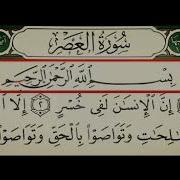 سُورَةُ الْعَصْرِ
بِسْمِ اللَّهِ الرَّحْمَٰنِ الرَّحِيمِ
إِنَّ الْإِنسَانَ لَفِى خُسْرٍ ٢ إِلَّا
ـلِحَٰتِ وَتَوَاصَوْا بِالْحَقِّ وَتَوَاصَوْا